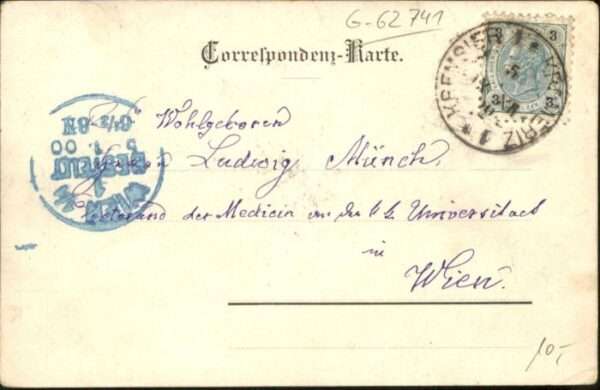 G-62741
Correspondenz-Karte.
3 3
3 3
KREMSIER KROMĚŘIZ 1
Wohlgeboren
Herrn Ludwig Münch,
der Medicin an der k k Universitaet
in
Wien.
WIEN
1
BESTELLT
5 1 00
10,-